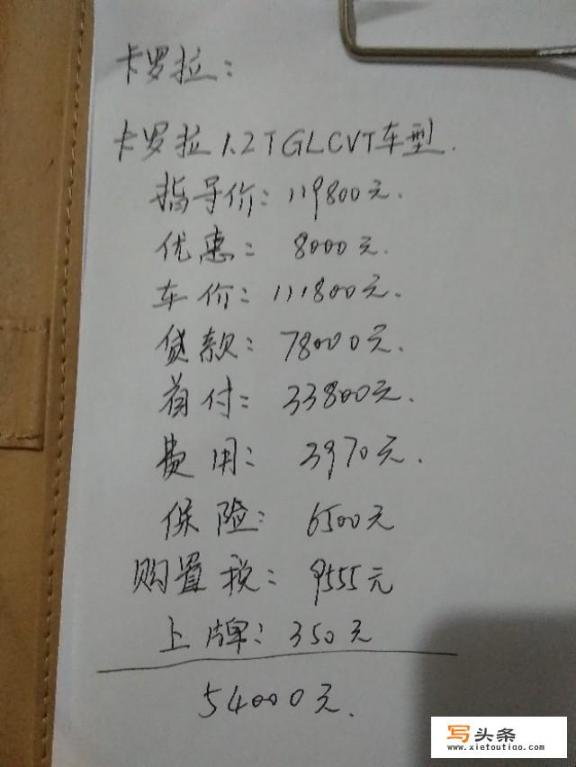 卡罗拉:
卡罗拉1.2TGLCVT车型.
指导价:119800元.
优惠: 8000元.
车价:111800元.
贷款:78000元.
首付:33800元.
费用:3970元.
保险:6500元
购置税:9555元
上牌:350元
54000元.
写头条
www.xietoutiao.com